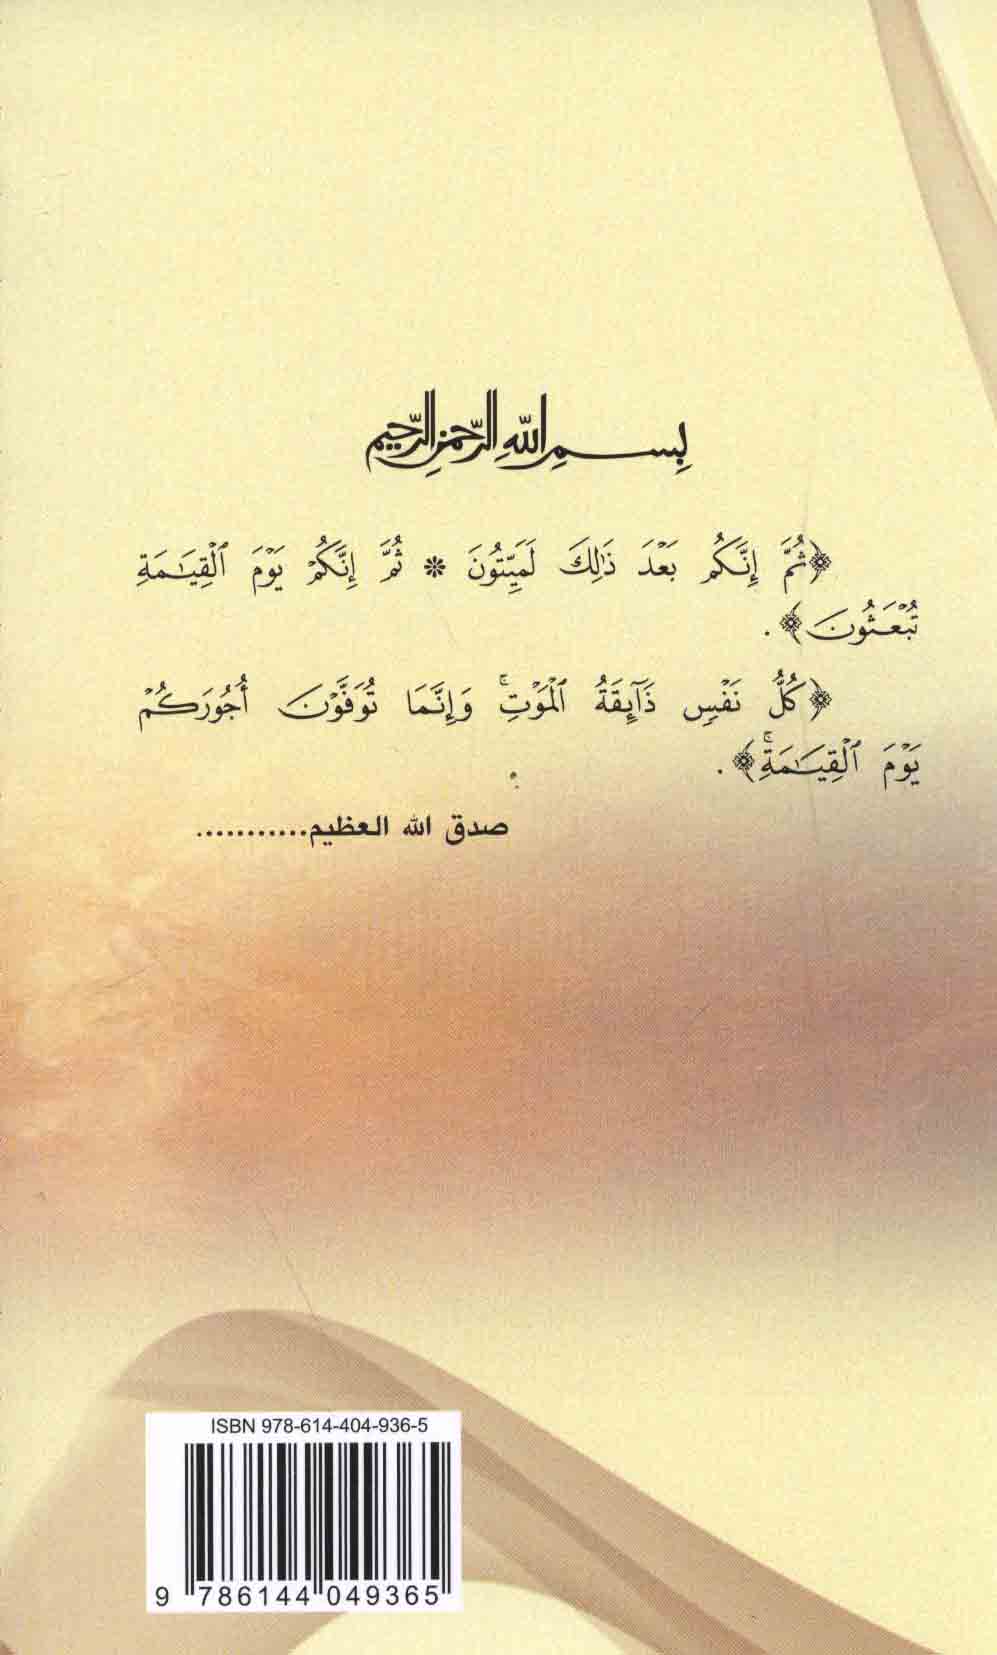 بِسمِ اللهِ الرَّحمنِ الرَّحيم
﴿ثُمَّ إِنَّكُم بَعْدَ ذَٰلِكَ لَمَيِّتُونَ * ثُمَّ إِنَّكُمْ يَوْمَ ٱلْقِيَـٰمَةِ
تُبْعَثُونَ﴾.
﴿كُلُّ نَفْسٍ ذَآئِقَةُ ٱلْمَوْتِ ۚ وَإِنَّمَا تُوَفَّوْنَ أُجُورَكُمْ
يَوْمَ ٱلْقِيَـٰمَةِ ۚ﴾.
صدق الله العظيم...........
ISBN 978-614-404-936-5
9 786144 049365